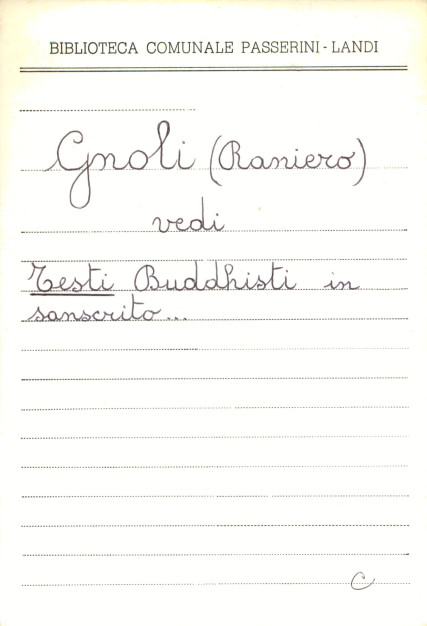 BIBLIOTECA COMUNALE PASSERINI - LANDI
Gnoli (Raniero)
vedi
Testi Buddhisti in
sanscrito...
C